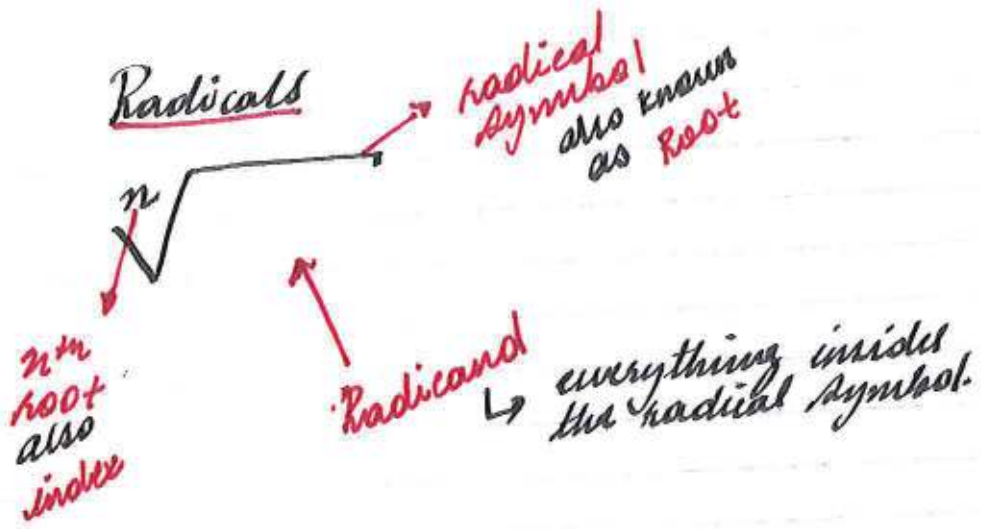 Radicals
radical
symbol
also known
as Root
n
nth
root
also
index
Radicand
↳ everything inside
the radical symbol.